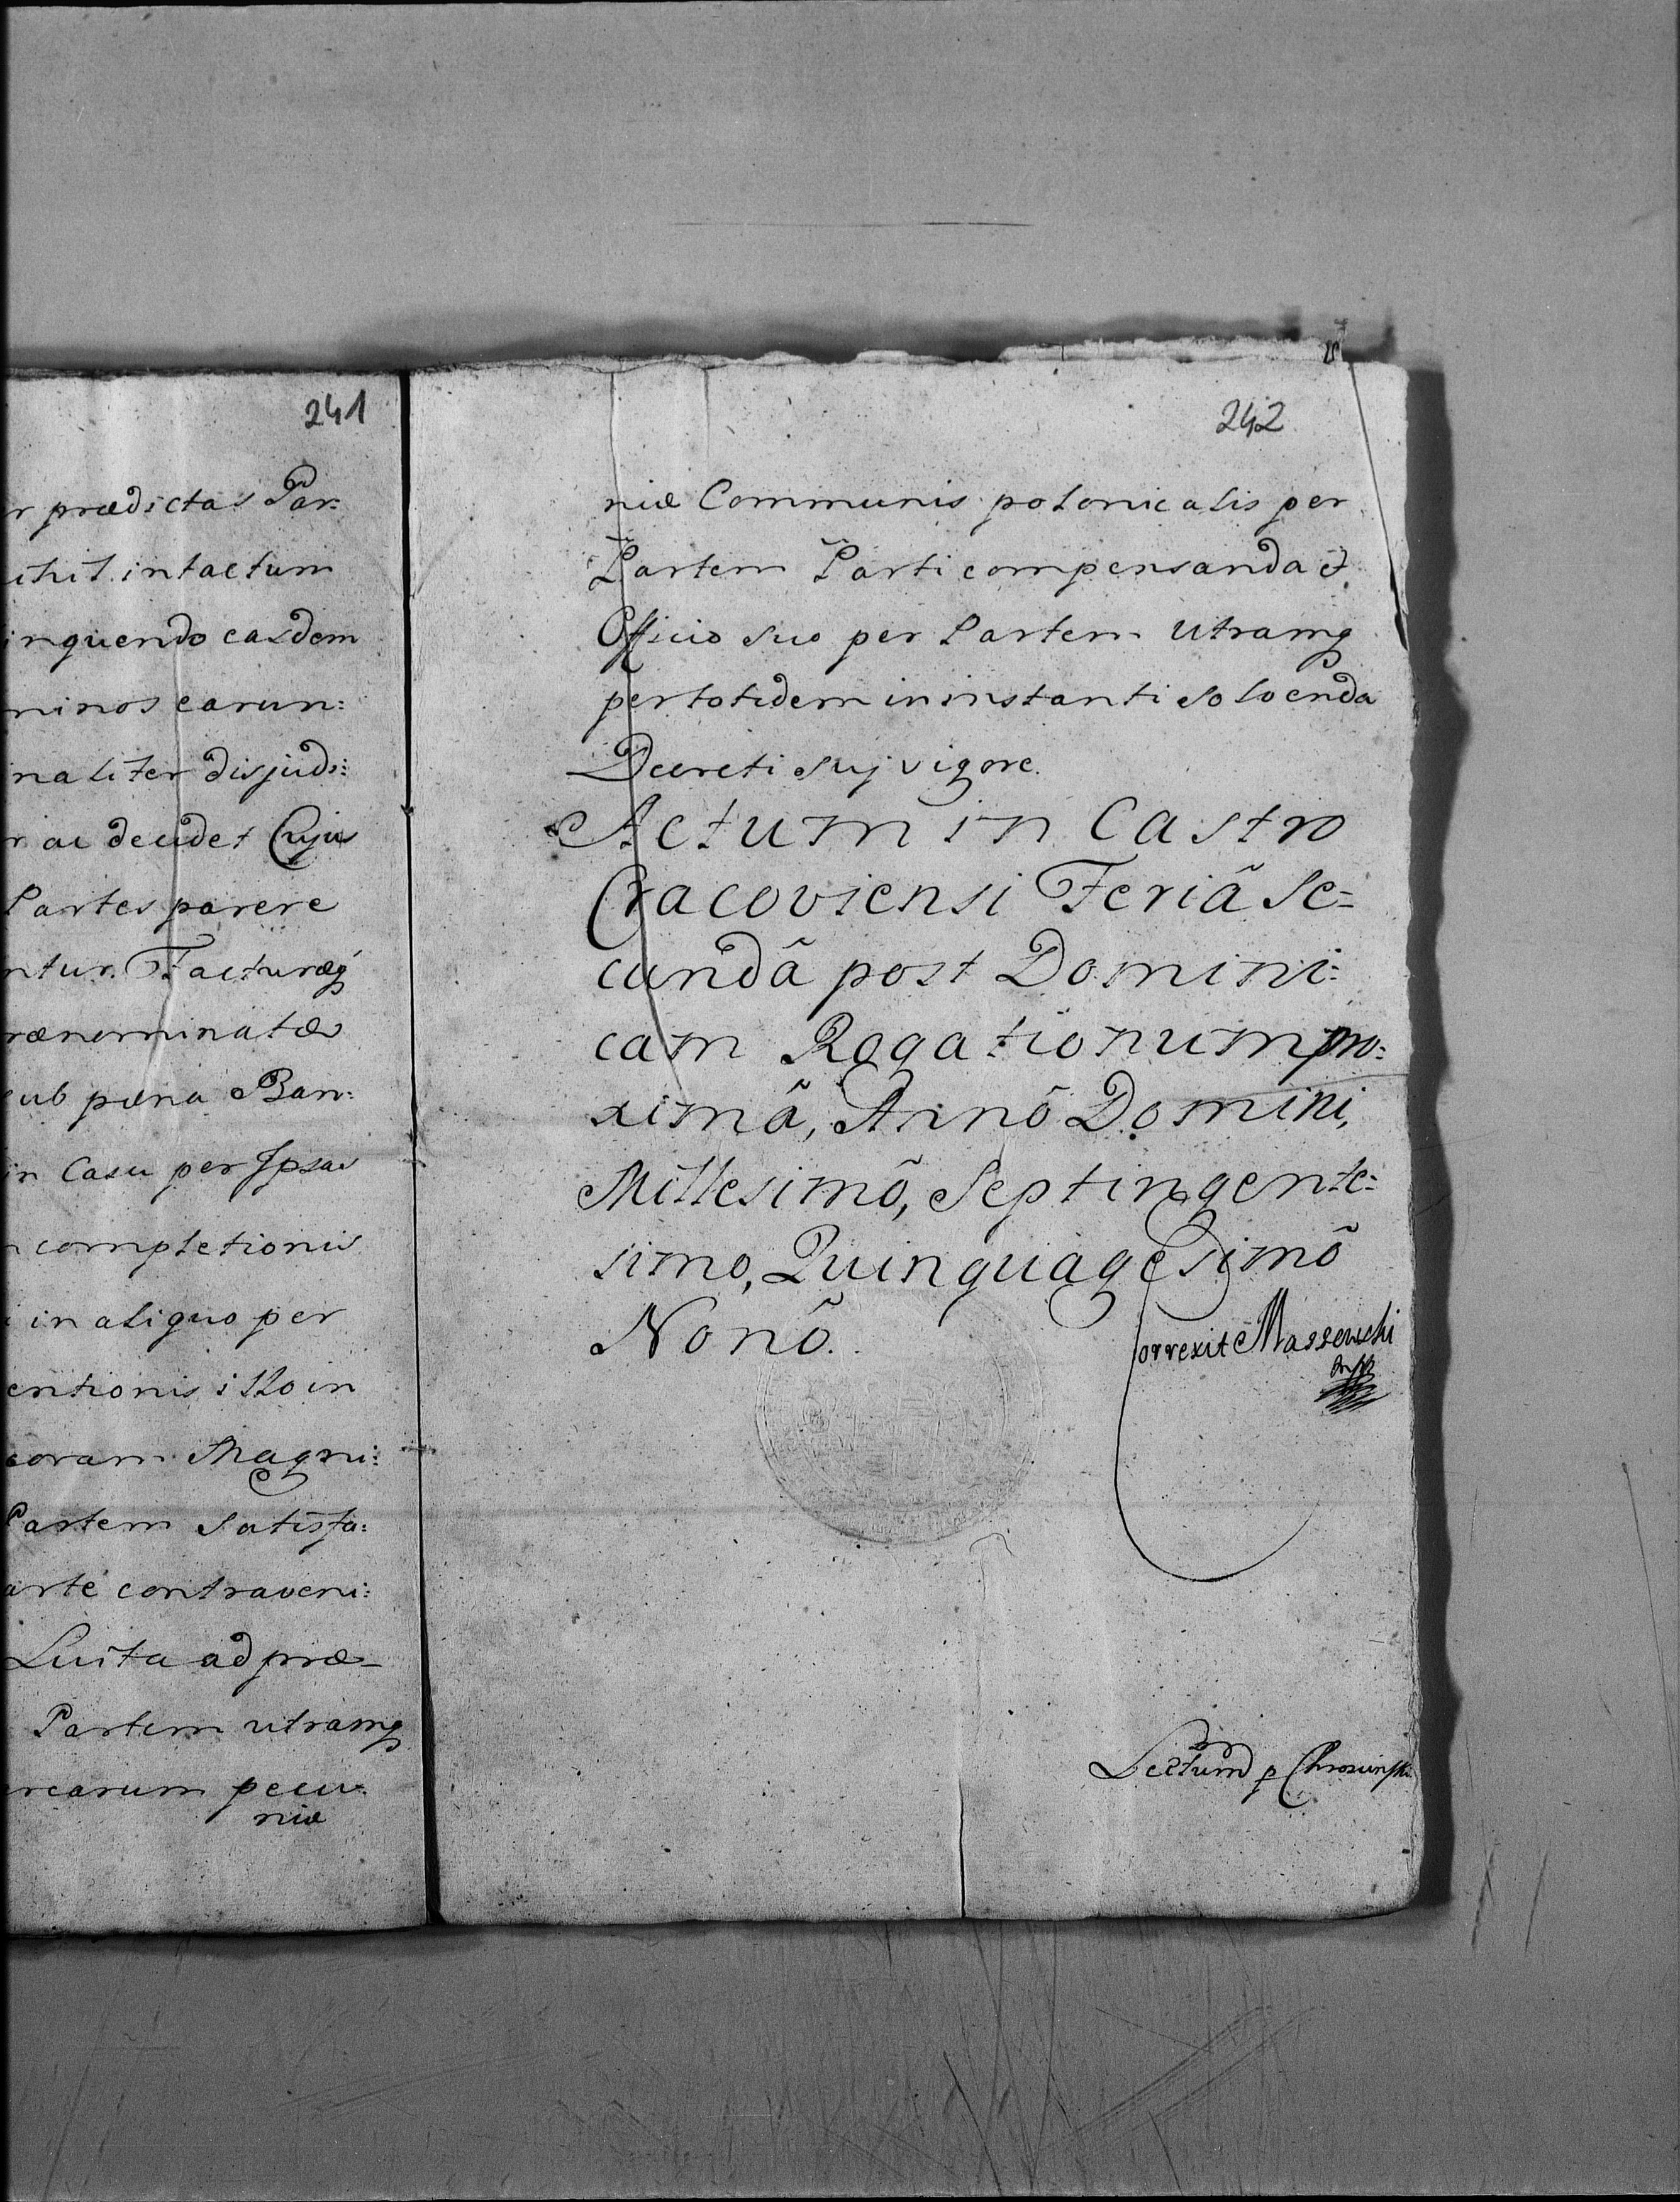 241
r prædictas Par:
ihil intactum
inquendo easdem
minos earun:
naliter disjudi:
r ac decidet Cujus
Partes parere
ntur. Facturæq
rænominatæ
sub pæna Ban:
in Casu per Ipsas
completionis
in aliquo per
entionis illo in
coram Magni:
Partem satisfa:
arte contraveni:
Luita ad præ-
Partem utramq
rcarum pecu:
niæ
242
niæ Communis polonicalis per
Partem Parti compensanda &
Officio suo per Partem Utramq
per totidem in instanti solvenda
Decreti suj vigore.
Actum in Castro
Cracoviensi Feriâ Se=
cundâ post Domini:
cam Rogationum pro:
ximâ, Annô Domini,
Millesimô, Septingente:
simo, Quinquagesimô
Nonô.
Correxit
Lectum p